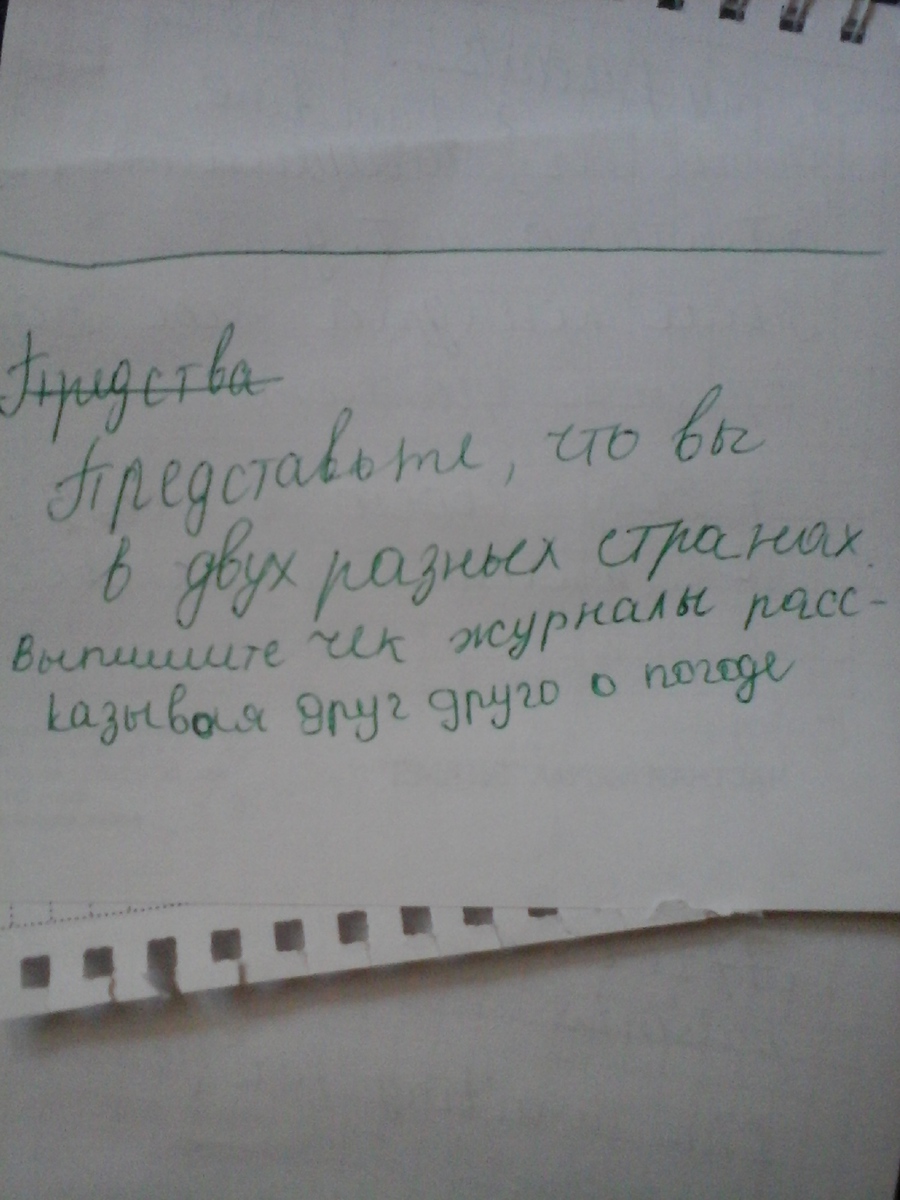 Предства
Представьте, что вы
в двух разных странах.
Выпишите чек журналы расс-
казывая друг друго о погоде